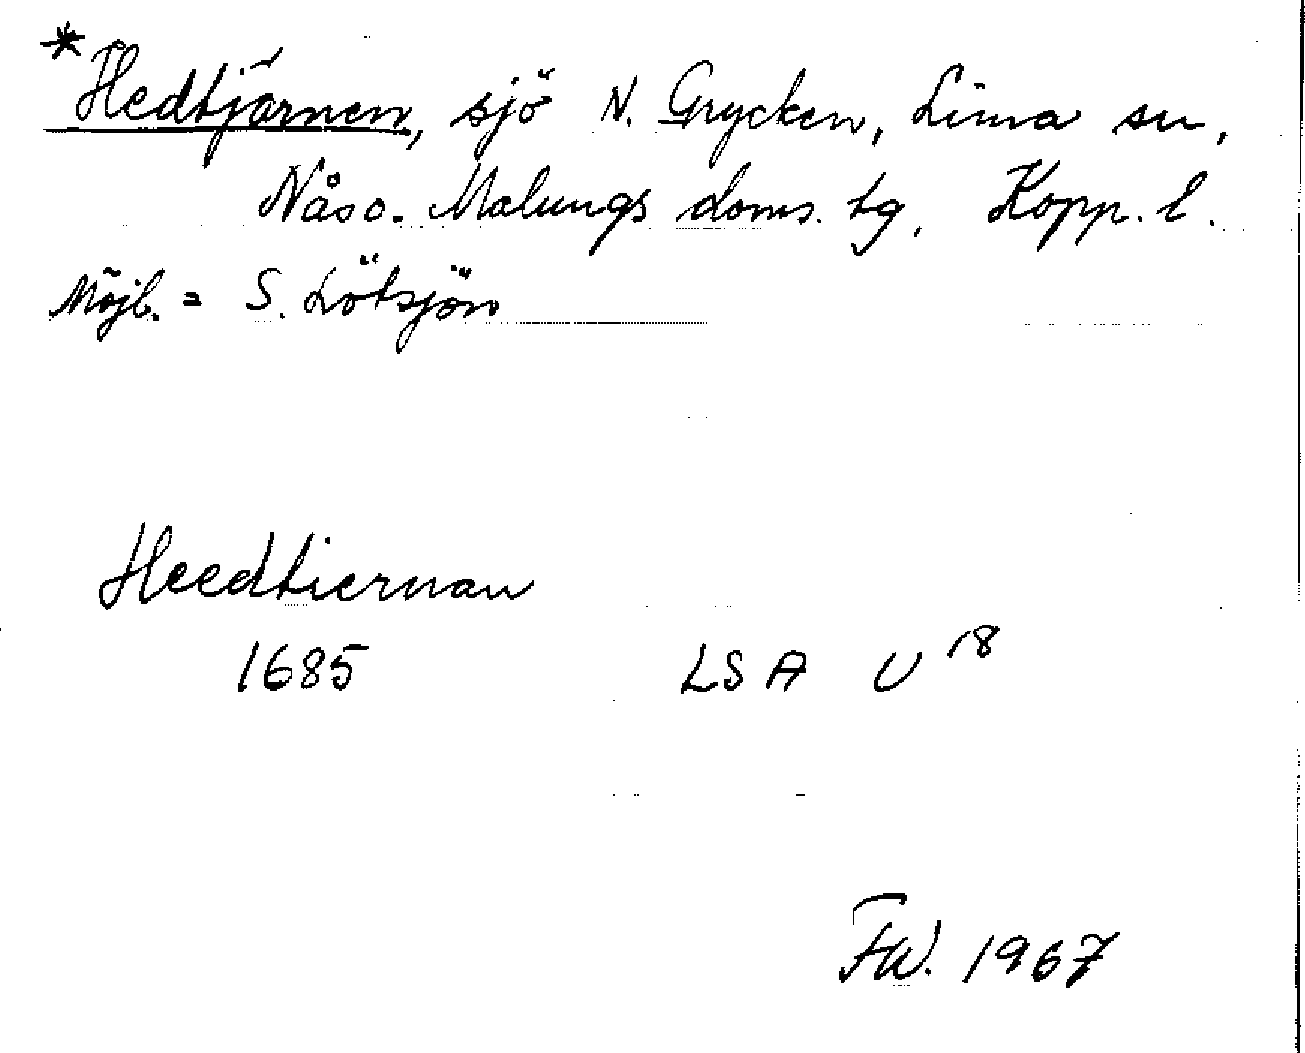 *Hedtjärnen, sjö N. Grycken, Lima sn,
Nås o. Malungs doms. tg, Kopp. l.
Möjl. = S. Lötsjön
Heedtiernan
1685 LSA U 18
FW. 1967